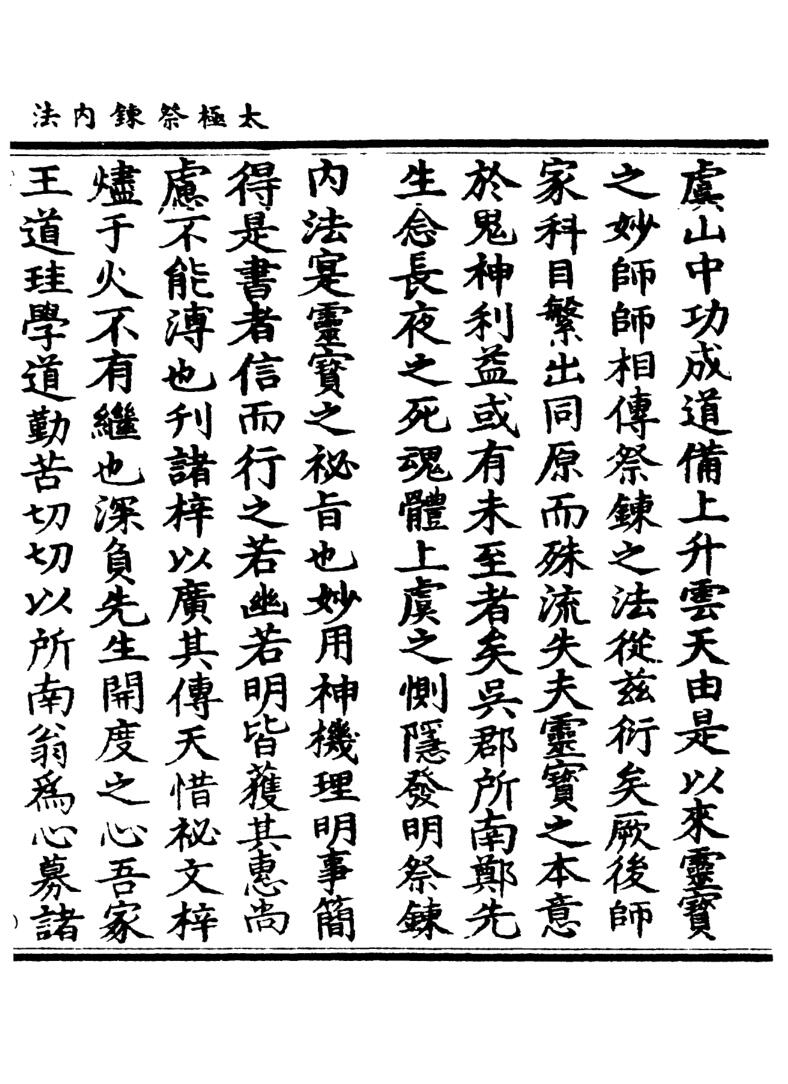 太極祭鍊內法
虞山中功成道備上升雲天由是以來靈寶
之妙師師相傳祭鍊之法從兹衍矣厥後師
家科目繁出同原而殊流失夫靈寶之本意
於鬼神利益或有未至者矣吳郡所南鄭先
生念長夜之死魂體上虞之惻隱發明祭鍊
內法寔靈寶之祕旨也妙用神機理明事簡
得是書者信而行之若幽若明皆獲其惠尚
慮不能溥也刋諸梓以廣其傳天惜祕文梓
燼于火不有繼也深負先生開度之心吾家
王道珪學道勤苦切切以所南翁爲心募諸